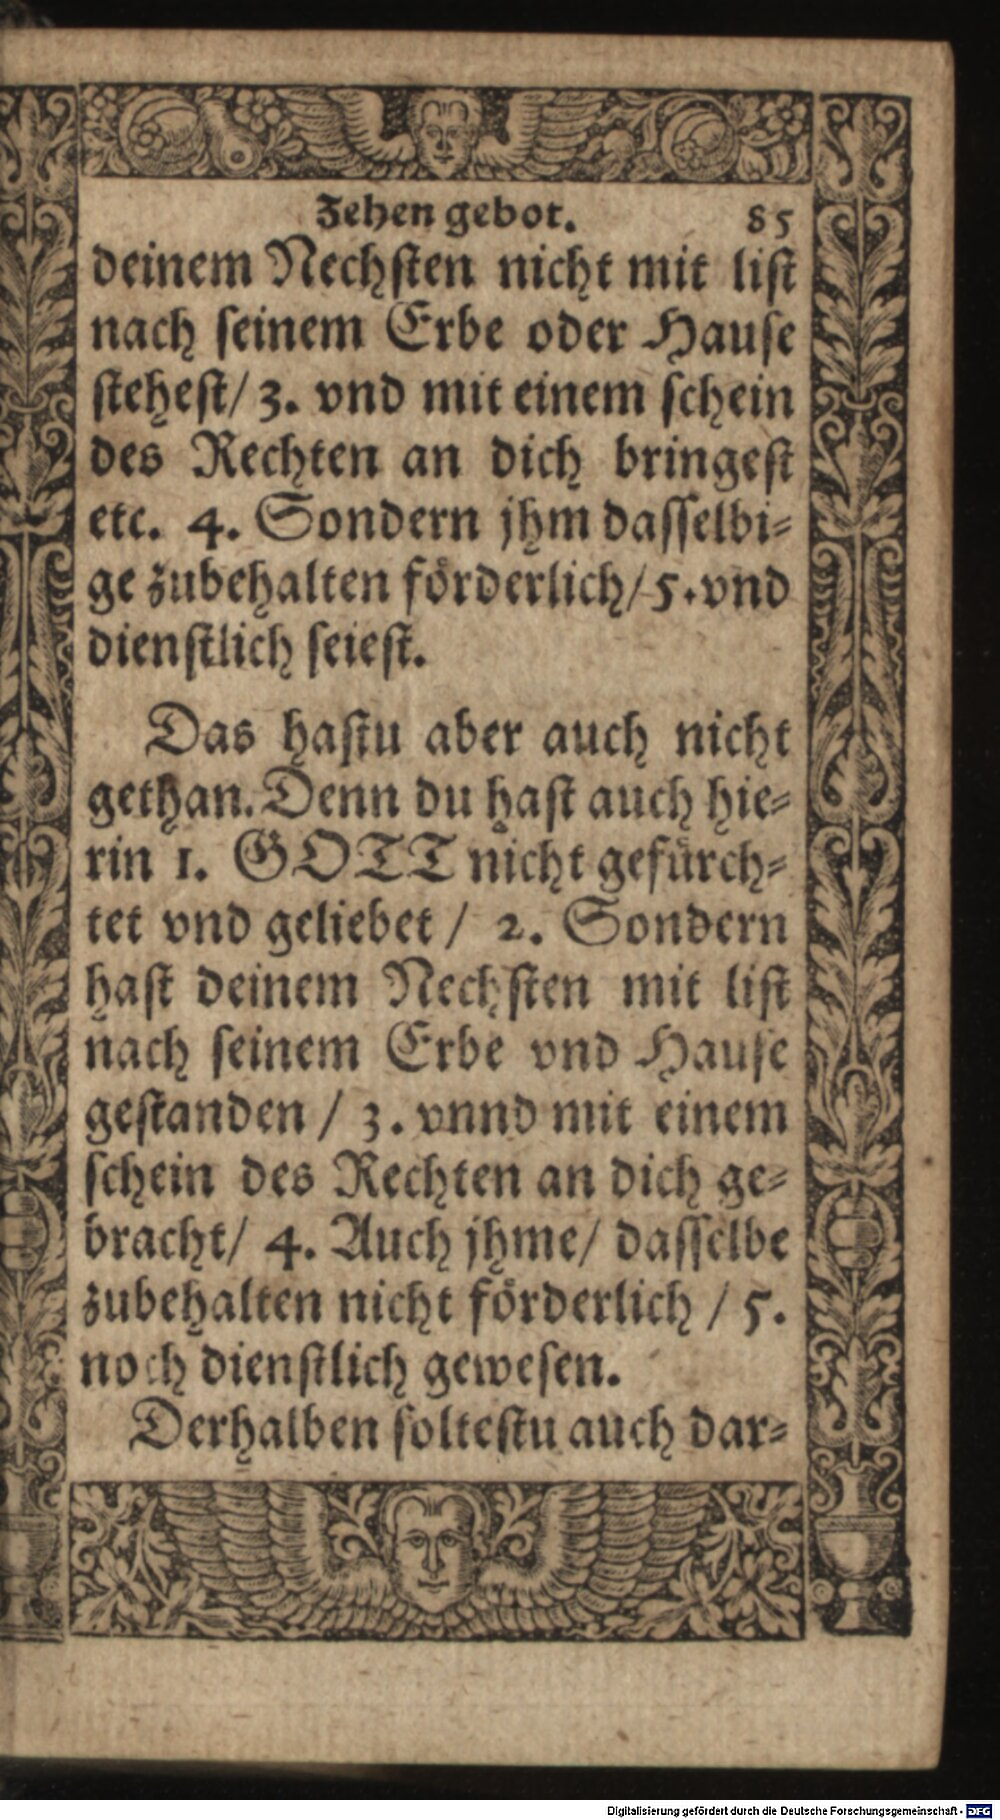 Zehen gebot. 85
deinem Nechsten nicht mit list
nach seinem Erbe oder Hause
stehest/ 3. vnd mit einem schein
des Rechten an dich bringest
etc. 4. Sondern jhm dasselbi-
ge zubehalten förderlich/ 5. vnd
dienstlich seiest.
Das hastu aber auch nicht
gethan. Denn du hast auch hie-
rin 1. GOTT nicht gefürch-
tet vnd geliebet / 2. Sondern
hast deinem Nechsten mit list
nach seinem Erbe vnd Hause
gestanden / 3. vnnd mit einem
schein des Rechten an dich ge-
bracht/ 4. Auch jhme/ dasselbe
zubehalten nicht förderlich / 5.
noch dienstlich gewesen.
Derhalben soltestu auch dar-
Digitalisierung gefördert durch die Deutsche Forschungsgemeinschaft - DFG